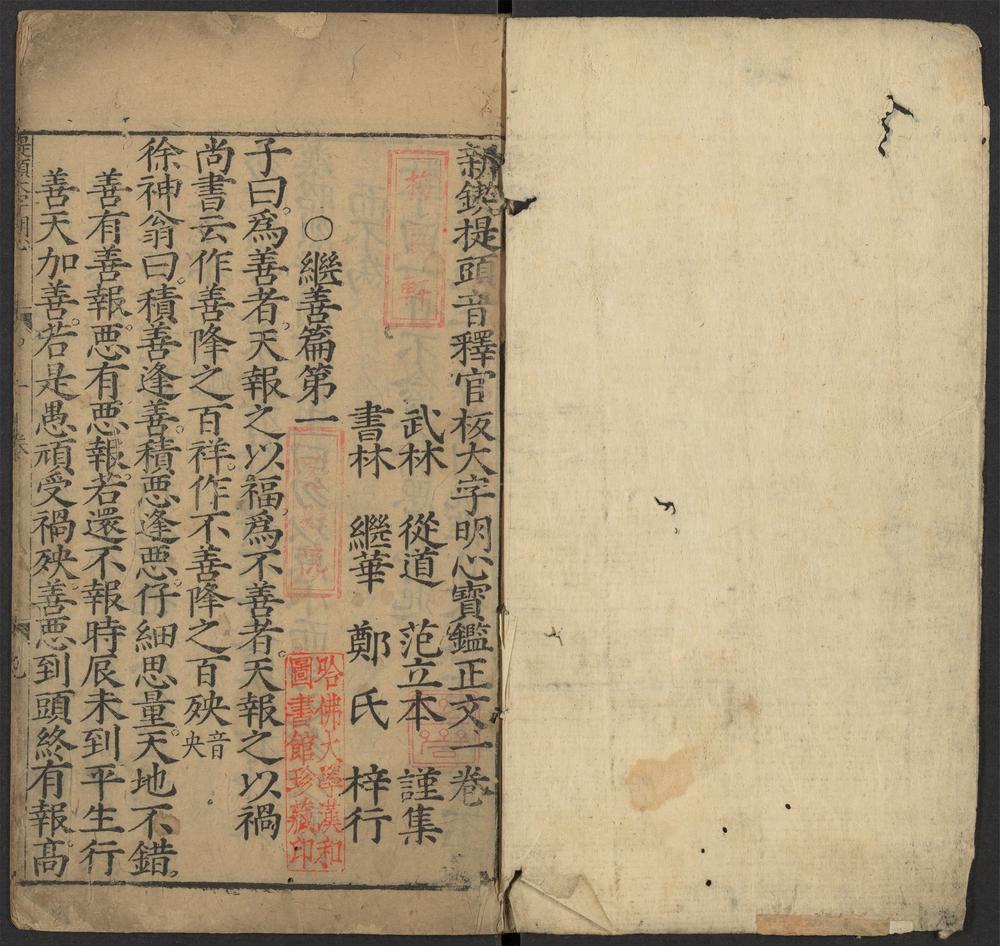 新鍥提頭音釋官板大字明心寶鑑正文一卷
武林 從道 范立本 謹集
書林 繼華 鄭氏 梓行
○繼善篇第一
子曰。爲善者。天報之以福。爲不善者。天報之以禍
尚書云作善降之百祥。作不善降之百殃音央
徐神翁曰。積善逢善。積惡逢惡。仔細思量。天地不錯。
善有善報。惡有惡報。若還不報時辰未到平生行
善天加善。若是愚頑受禍殃。善惡到頭終有報。高
哈佛大學漢和
圖書館珍藏印